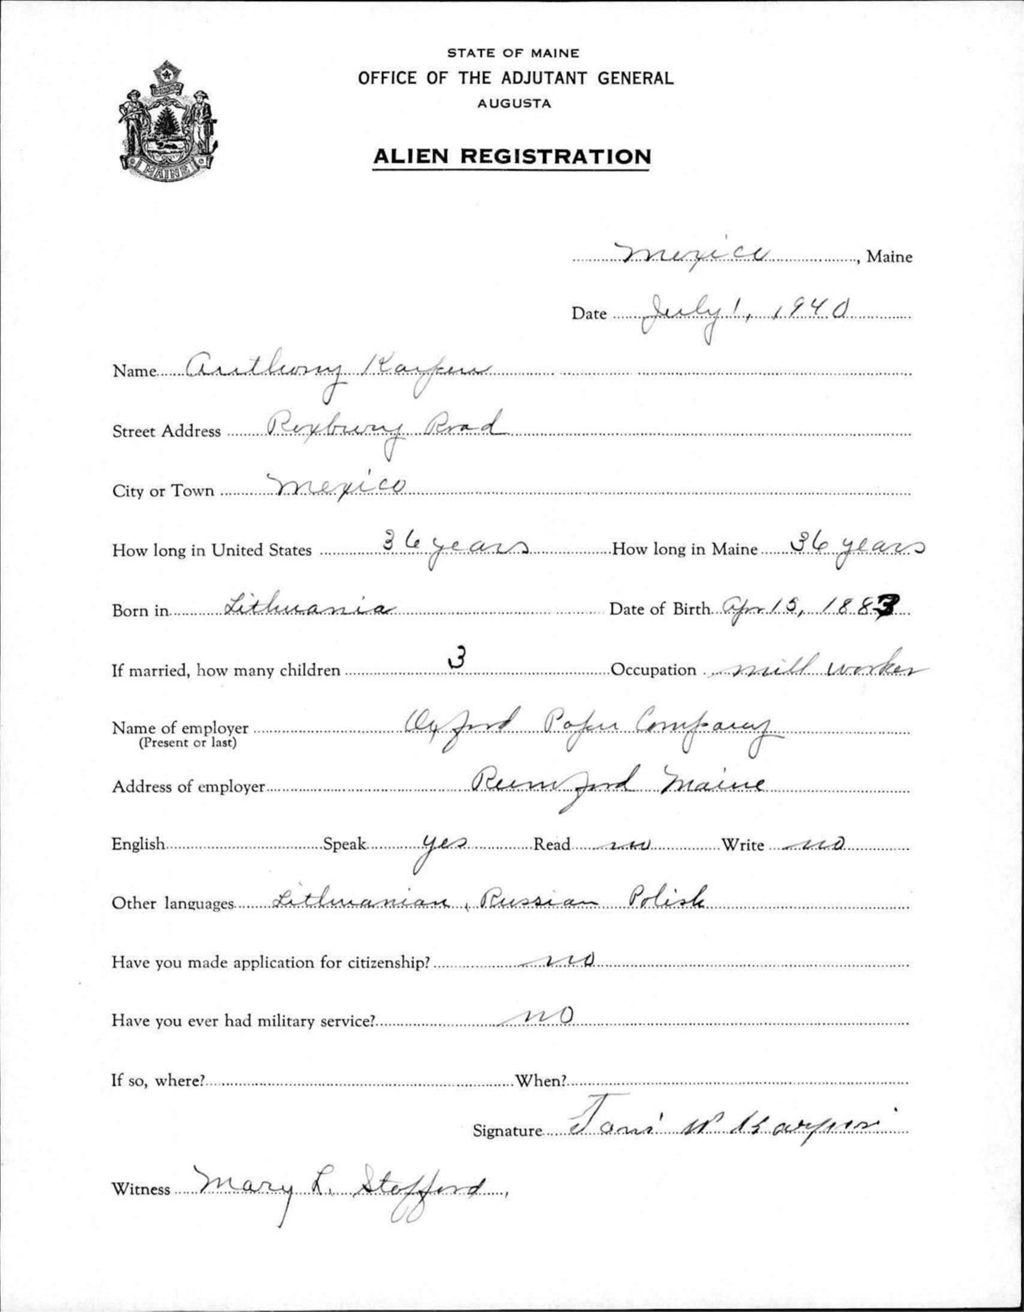 STATE OF MAINE
OFFICE OF THE ADJUTANT GENERAL
AUGUSTA
ALIEN REGISTRATION
MAINE
Mexico, Maine
Date July 1, 1940
Name Anthony Karpen
Street Address Roxbury Road
City or Town Mexico
How long in United States 36 years How long in Maine 36 years
Born in Lithuania Date of Birth Apr 15, 1883
If married, how many children 3 Occupation mill worker
Name of employer Oxford Paper Company
(Present or last)
Address of employer Rumford Maine
English Speak yes Read no Write no
Other languages Lithuanian, Russian Polish
Have you made application for citizenship? no
Have you ever had military service? no
If so, where? When?
Signature
Witness Mary L. Stofford,